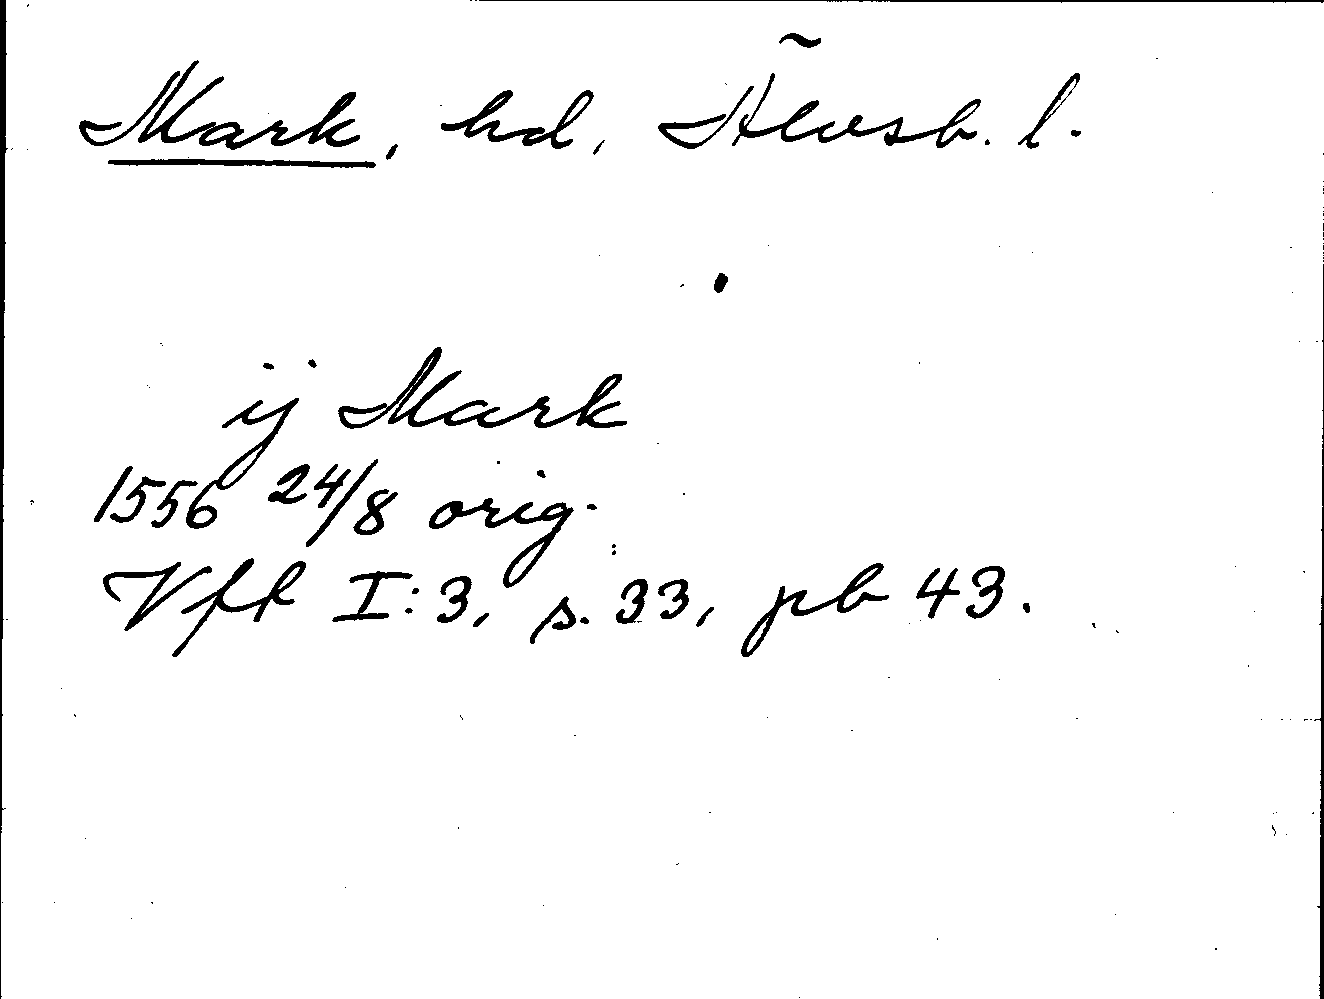 Mark, hd, Älvsb. l.
ij Mark
1556 24/8 orig.
Vff I:3, s. 33, pb 43.